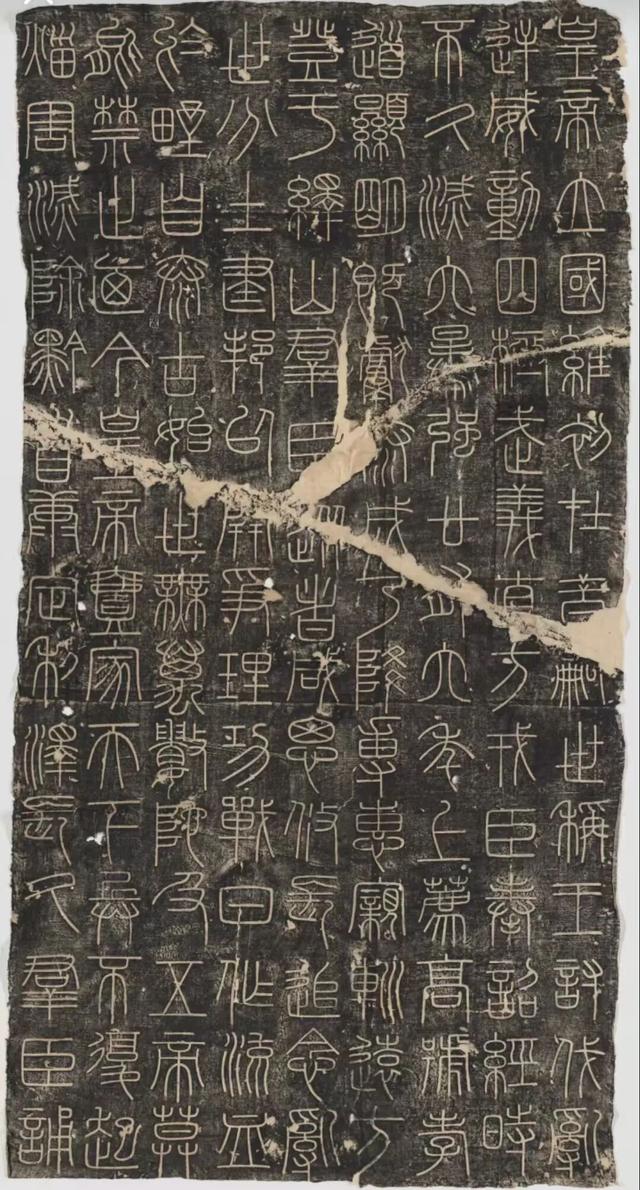 皇帝立國維初在昔嗣世稱王討伐亂
逆威動四極武義直方戎臣奉詔經時
不久滅六暴強廿有六年上薦高號孝
道顯明既獻泰成乃降專惠親䡅遠方
登于繹山羣臣從者咸思攸長追念亂
世分土建邦以開爭理功戰日作流血
於野自泰古始世無萬數陀及五帝莫
能禁止廼今皇帝壹家天下兵不復起
災害滅除黔首康定利澤長久羣臣誦